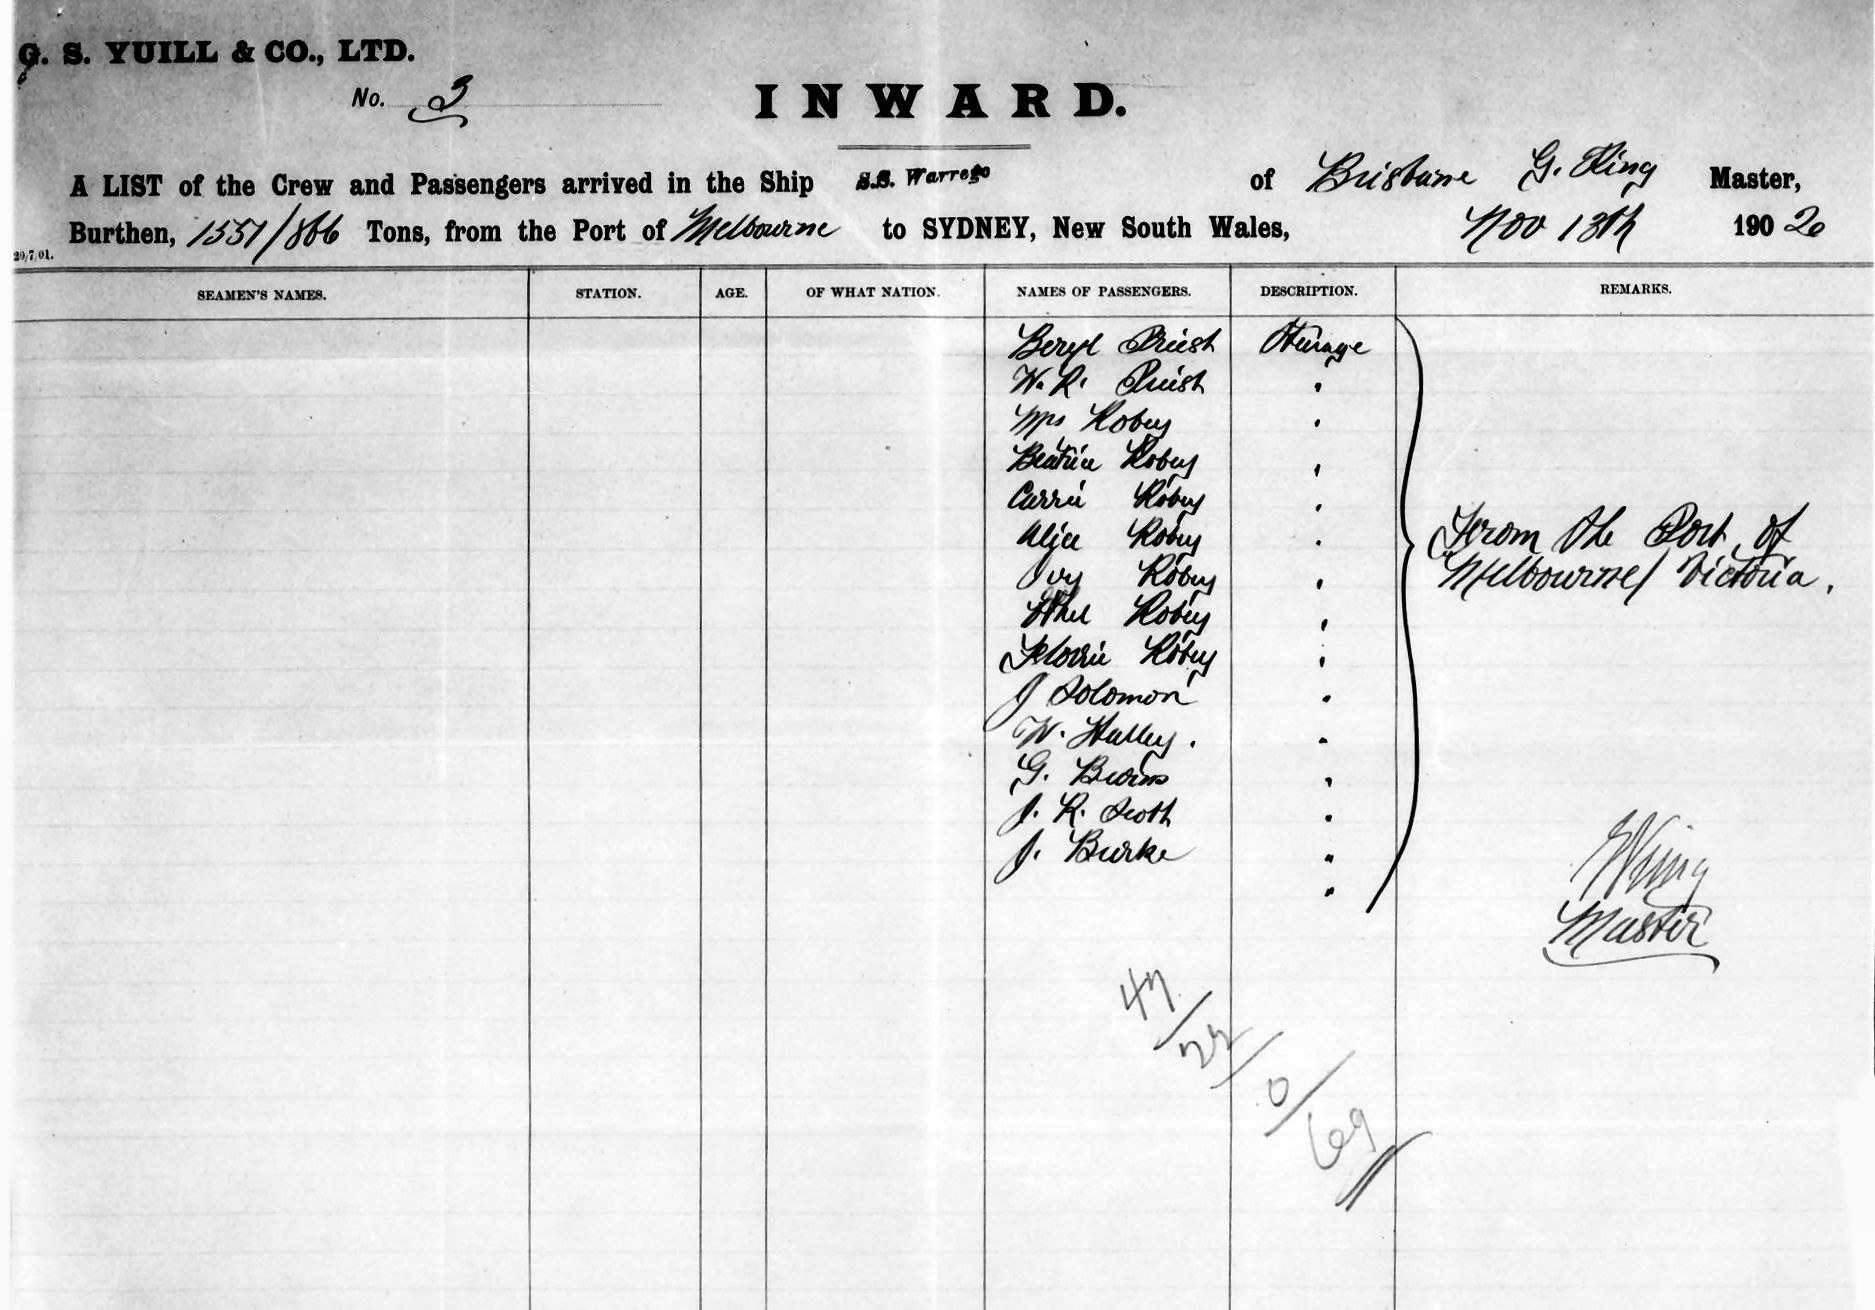 G. S. YUILL & CO., LTD.
No. 3
INWARD.
A LIST of the Crew and Passengers arrived in the Ship S.S. Warrego of Brisbane G. King Master,
Burthen, 1551/866 Tons, from the Port of Melbourne to SYDNEY, New South Wales, Nov 13th 1902
20/7/01.
SEAMEN'S NAMES. STATION. AGE. OF WHAT NATION. NAMES OF PASSENGERS. DESCRIPTION. REMARKS.
Beryl Priest Steerage
W. R. Priest "
Mrs Robey "
Beatrice Robey "
Carrie Robey "
Alice Robey "
Ivy Robey "
Ethel Robey "
Florrie Robey "
J Solomon "
W. Halley. "
G. Burns "
J. R. Scott "
J. Burke "
"
From the Port of
Melbourne/ Victoria.
GKing
Master
47/22/0/69